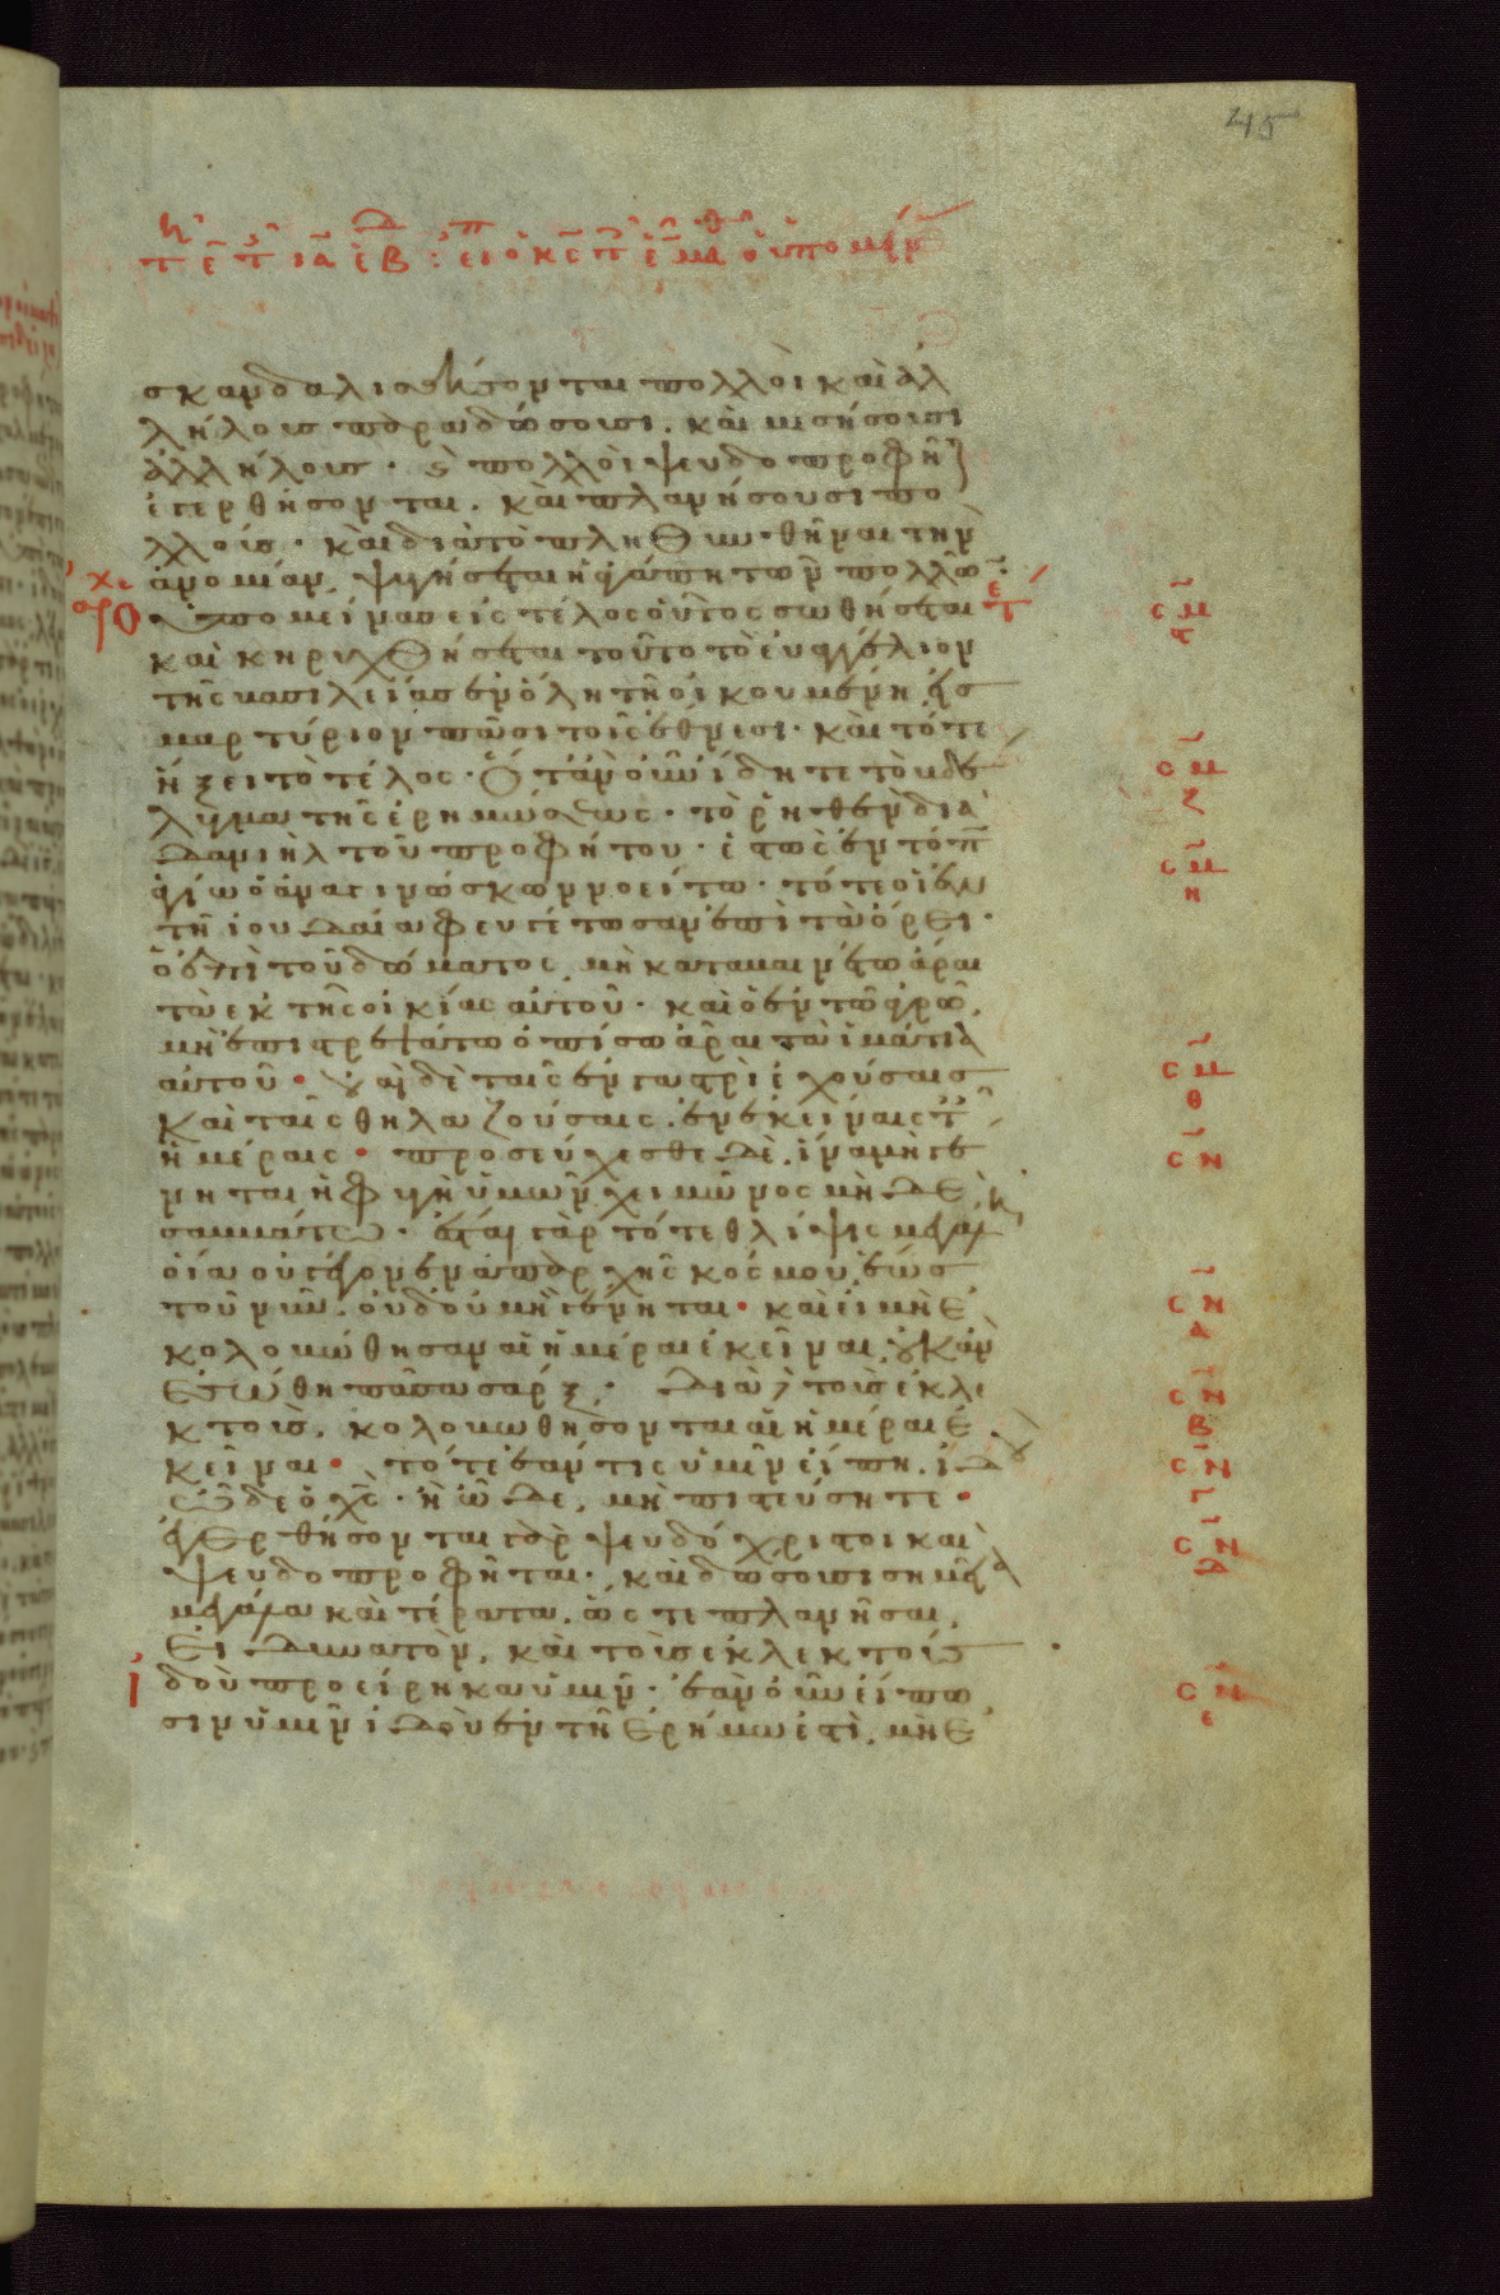 45
σκανδαλισθήσονται πολλοὶ καὶ ἀλ
λήλους παραδώσουσι. καὶ μισήσουσι
ἀλλήλους · ϛ̀ πολλοὶ ψευδοπροφῆ
ἐγερθήσονται. καὶ πλανήσουσι πο
λλούς · καὶ διὰ τὸ πληθυνθῆναι τὴν
ἀνομίαν, ψυγήσεται ἡ ἀγάπη τῶν πολλῶ ·
ὁ ὑπομείνας εἰς τέλος οὗτος σωθήσεται
καὶ κηρυχθήσεται τοῦτο τὸ εὐαγγέλιον
τῆς βασιλείας ἐν ὅλη τῆ οἰκουμένη εἰς
μαρτύριον πᾶσι τοῖς ἔθνεσι · καὶ τότε
ἥξει τὸ τέλος · Ὅταν οὖν ἴδητε τὸ βδέ
λυγμα τῆς ἐρημώσεως · τὸ ῥηθὲν διὰ
Δανιὴλ τοῦ προφήτου · ἑστὼς ἐν τόπ
ἁγίω ὁ ἀναγινώσκων νοείτω · τότε οἱ ἐν
τῆ ἰουδαία φευγέτωσαν ἐπὶ τὰ ὄρει ·
ὁ ἐπὶ τοῦ δώματος, μὴ καταβαινέτω ἆραι
τὰ ἐκ τῆς οἰκίας αὐτοῦ · καὶ ὁ ἐν τῶ ἀγρῶ,
μὴ ἐπιστρεψάτω ὀπίσω ἆραι τὰ ἱμάτια
αὐτοῦ · οὐαὶ δὲ ταῖς ἐν γαστρὶ ἐχούσαις
καὶ ταῖς θηλαζούσαις. ἐν ἐκείναις τ
ἡμέραις · προσεύχεσθε δὲ. ἵνα μὴ γέ
νηται ἡ φυγὴ ὑμῶν χειμῶνος μὴ δὲ
σαββάτω · ἔσται γὰρ τότε θλίψις μεγάλ
οἵα οὐ γέγονεν ἀπαρχῆς κόσμου, ἕως
τοῦ νῦν. οὐδοὐμὴ γένηται · καὶ εἰ μὴ ἐ
κολοβώθησαν αἱ ἡμέραι ἐκεῖναι, οὐκ ἂν
ἐσώθη πᾶσα σάρξ · Διὰ δ τοὺς ἐκλε
κτοὺς, κολοβωθήσονται αἱ ἡμέραι ἐ
κεῖναι · τότε ἐάν τις ὑμῖν εἴπη. ἰδοὺ
ὧδε ὁ χς · ἢ ὧδε, μὴ πιστεύσητε ·
ἐγερθήσονται γὰρ ψευδόχριστοι καὶ
ψευδοπροφῆται · καὶ δώσουσι σημεῖα
μεγάλα καὶ τέρατα. ὥστε πλανῆσαι,
Εἰ δυνατὸν, καὶ τοὺς ἐκλεκτούς
ἰδοὺ προείρηκα ὑμῖν · ἐὰν οὖν εἴπω
σιν ὑμῖν ἰδοὺ ἐν τῆ ἐρήμω ἐστὶ, μὴ ἐ